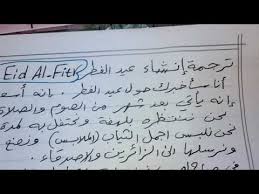 ترجمة إنشاء عيد الفطر Eid Al-Fitr
أنا سأخبرك حول عيد الفطر. إنه أسعد
إنه يأتي بعد شهر من الصوم والصلاة
نحن ننتظره بلهفة ونحتفل به لمدة
نحن نلبس أجمل الثياب (الملابس) ونصنع
ونرسلها إلى الزائرين والأصدقاء.